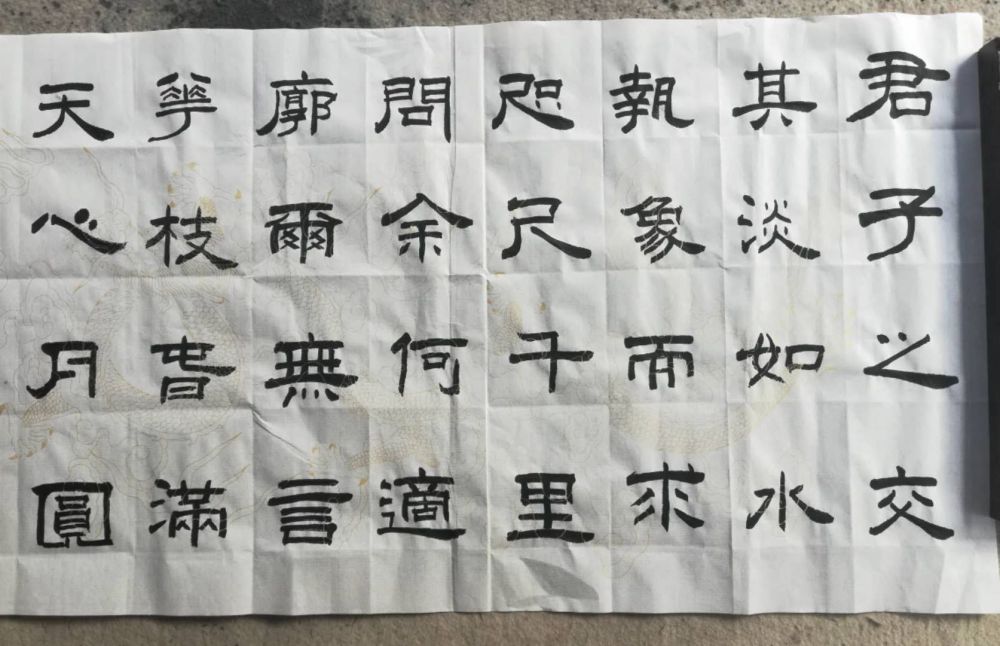 君子之交
其淡如水
執象而求
咫尺千里
問余何適
廓爾無言
華枝旾滿
天心月圓